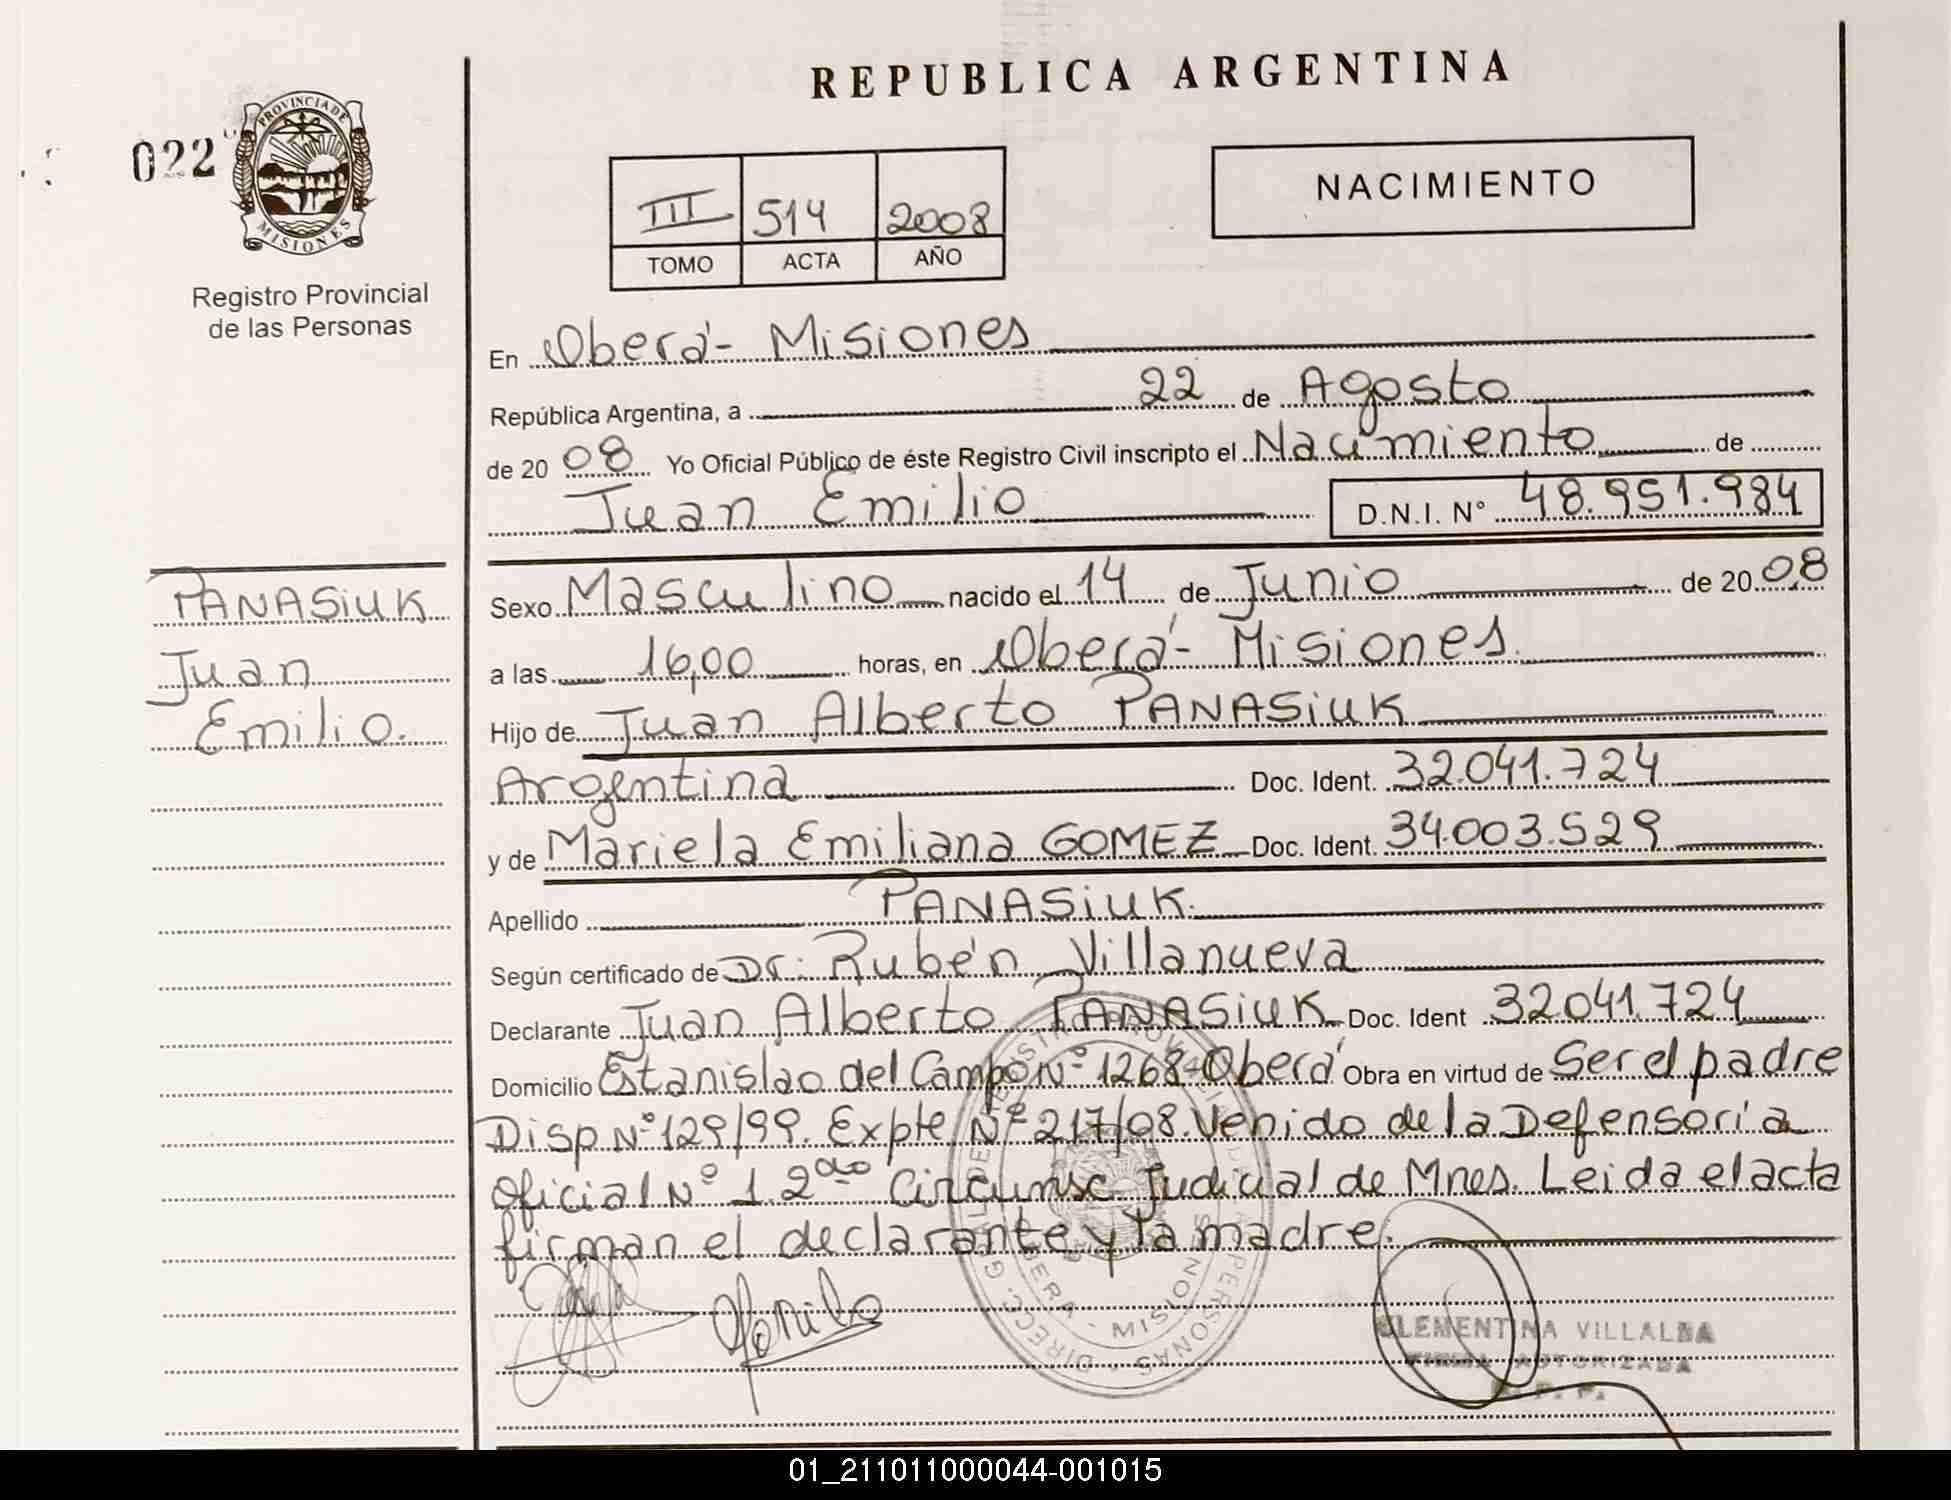 REPUBLICA ARGENTINA
022
PROVINCIA DE
MISIONES
Registro Provincial
de las Personas
III 514 2008
TOMO ACTA AÑO
NACIMIENTO
En Oberá - Misiones
República Argentina, a 22 de Agosto
de 20 08 Yo Oficial Público de éste Registro Civil inscripto el Nacimiento de
Juan Emilio D.N.I. N° 48.951.984
PANASiUK
Juan
Emilio.
Sexo Masculino nacido el 14 de Junio de 20 08
a las 16,00 horas, en Oberá - Misiones.
Hijo de Juan Alberto PANASiUK
Argentina Doc. Ident. 32.041.724
y de Mariela Emiliana GOMEZ Doc. Ident. 34.003.529
Apellido PANASiUK.
Según certificado de Dr: Rubén Villanueva
Declarante Juan Alberto PANASiUK Doc. Ident 32.041.724
Domicilio Estanislao del Campo N° 1268-Oberá Obra en virtud de Ser el padre
Disp. N° 129/99. Expte. N° 217/08. Venido de la Defensoría
Oficial N° 1. 2da Circunsc. Judicial de Mnes. Leida el acta
firman el declarante y la madre.
CLEMENTINA VILLALBA
FIRMA AUTORIZADA
R. P. P.
01_211011000044-001015